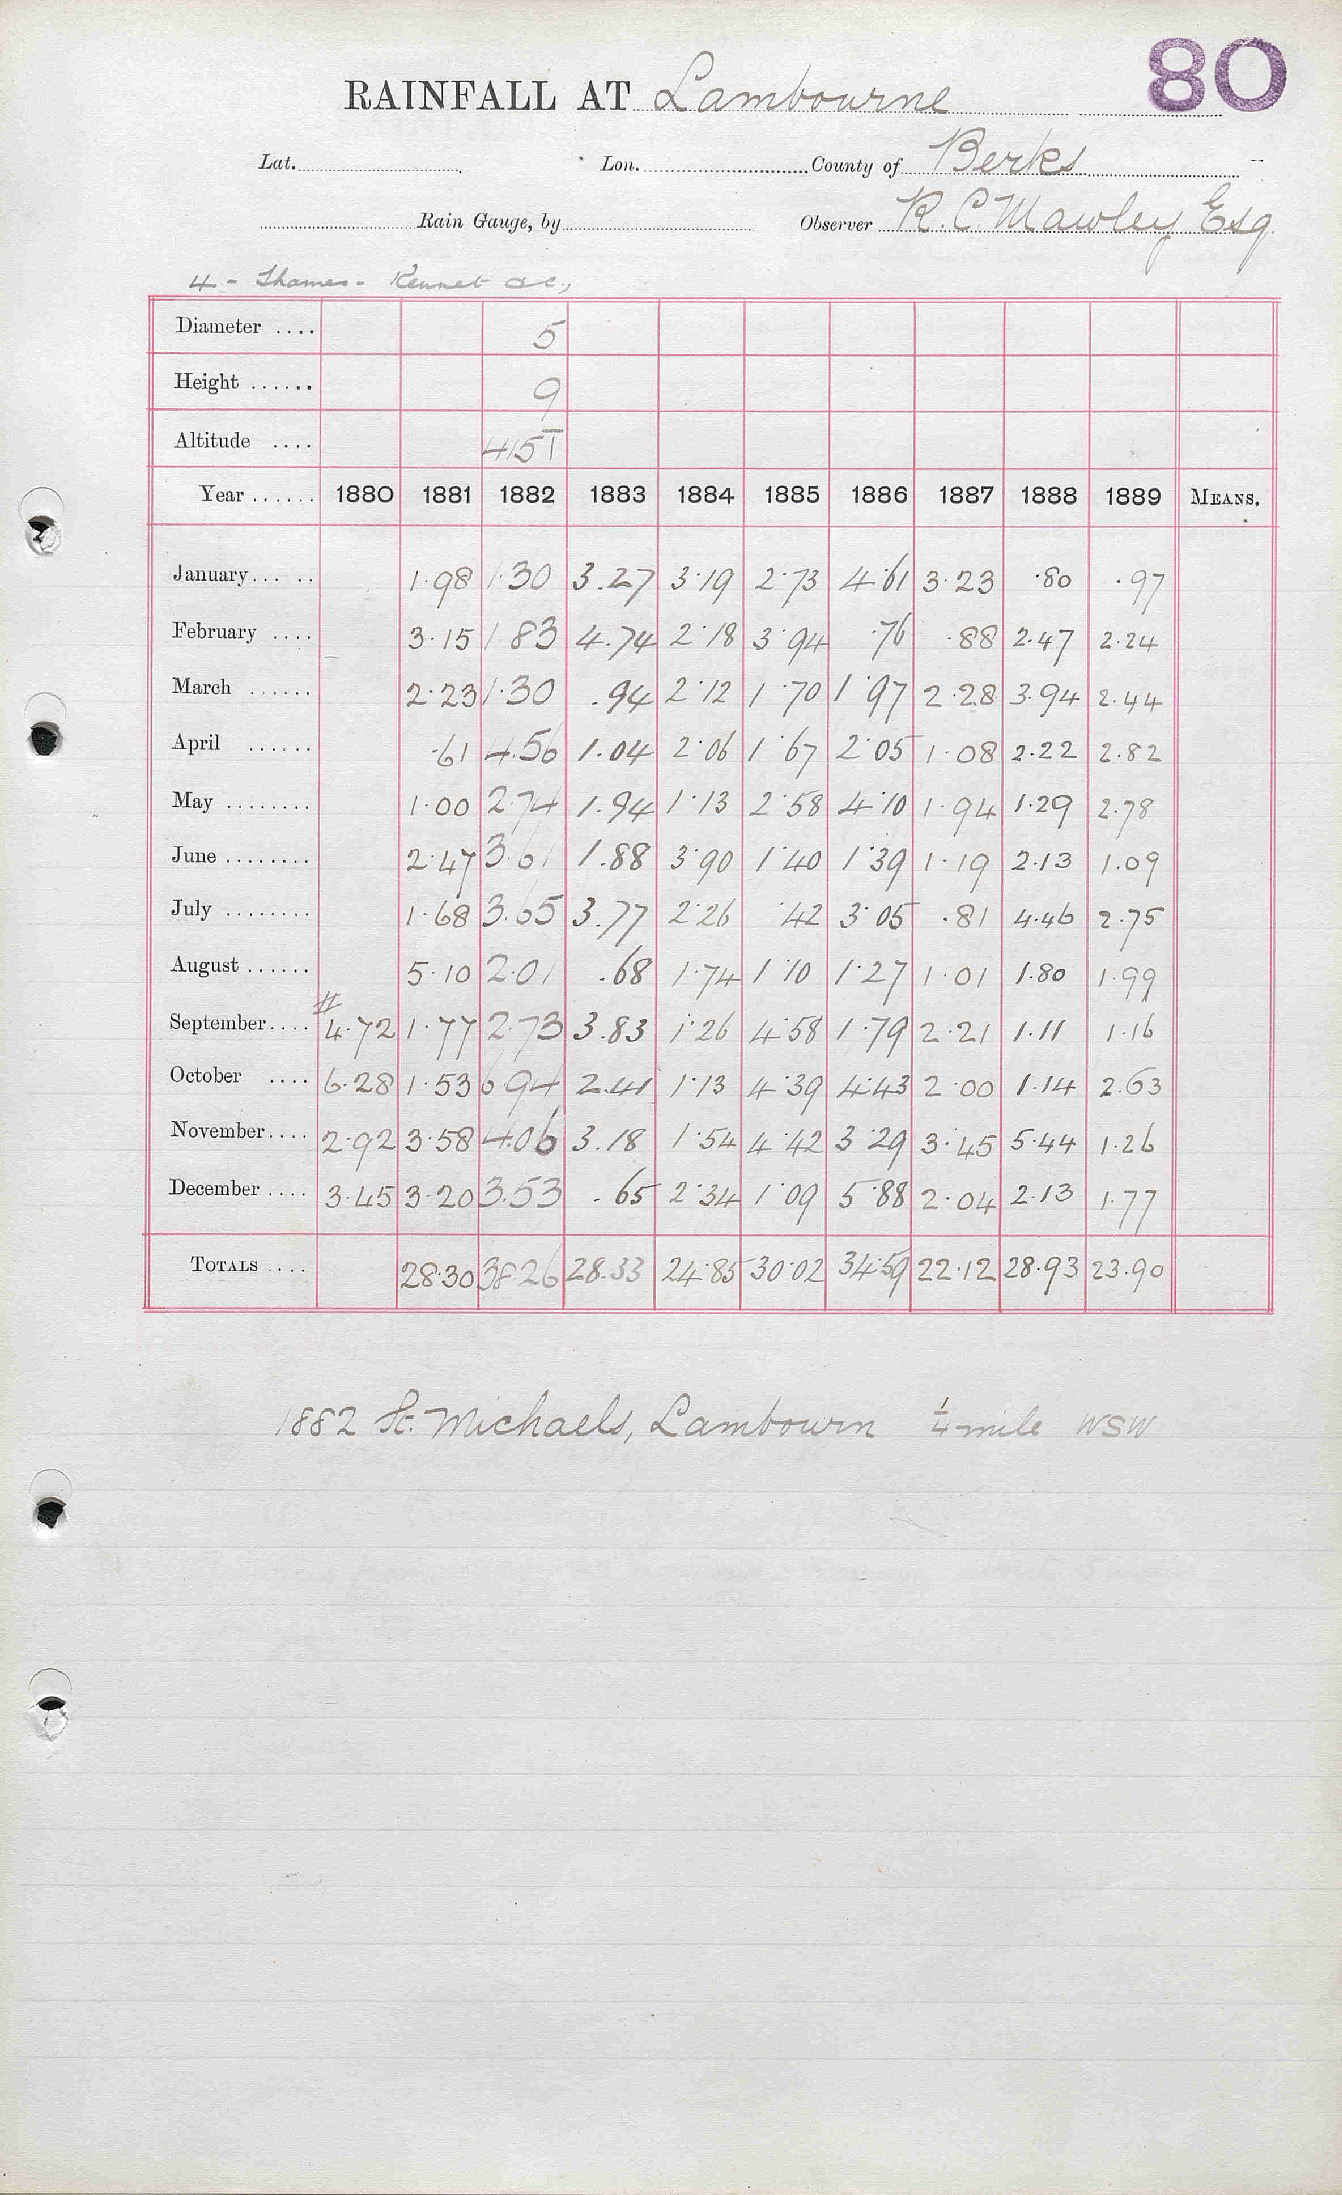 80
RAINFALL AT Lambourne
Lat. Lon. County of Berks
Rain Gauge, by Observer R. C. Mawley Esq
4 - Thames - Kennet &c,
Diameter .... 5
Height ...... 9
Altitude .... 415T
Year ...... 1880 1881 1882 1883 1884 1885 1886 1887 1888 1889 MEANS.
January... .. 1.98 1.30 3.27 3.19 2.73 4.61 3.23 .80 .97
February .... 3.15 1.83 4.74 2.18 3.94 .76 .88 2.47 2.24
March ...... 2.23 1.30 .94 2.12 1.70 1.97 2.28 3.94 2.44
April ...... .61 4.56 1.04 2.06 1.67 2.05 1.08 2.22 2.82
May ........ 1.00 2.74 1.94 1.13 2.58 4.10 1.94 1.29 2.78
June ........ 2.47 3.61 1.88 3.90 1.40 1.39 1.19 2.13 1.09
July ........ 1.68 3.65 3.77 2.26 .42 3.05 .81 4.46 2.75
August ...... 5.10 2.01 .68 1.74 1.10 1.27 1.01 1.80 1.99
September.... # 4.72 1.77 2.73 3.83 1.26 4.58 1.79 2.21 1.11 1.16
October .... 6.28 1.53 6.94 2.41 1.13 4.39 4.43 2.00 1.14 2.63
November.... 2.92 3.58 4.06 3.18 1.54 4.42 3.29 3.45 5.44 1.26
December .... 3.45 3.20 3.53 .65 2.34 1.09 5.88 2.04 2.13 1.77
TOTALS .... 28.30 38.26 28.33 24.85 30.02 34.59 22.12 28.93 23.90
1882 St. Michaels, Lambourn 1/4 mile WSW